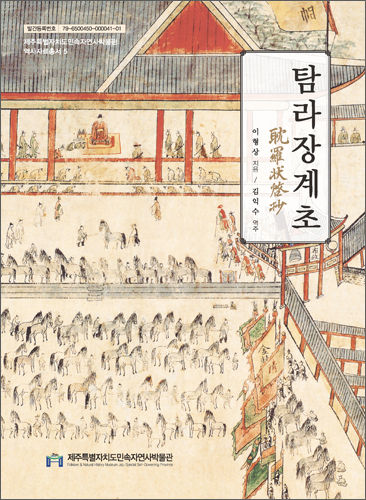 발간등록번호 79-6500450-000041-01
제주특별자치도민속자연사박물관
역사자료총서 5
탐라장계초
耽羅狀啓抄
이형상 지음 / 김익수 역주
제주특별자치도민속자연사박물관
Folklore & Natural History Museum Jeju Special Self-Governing Province